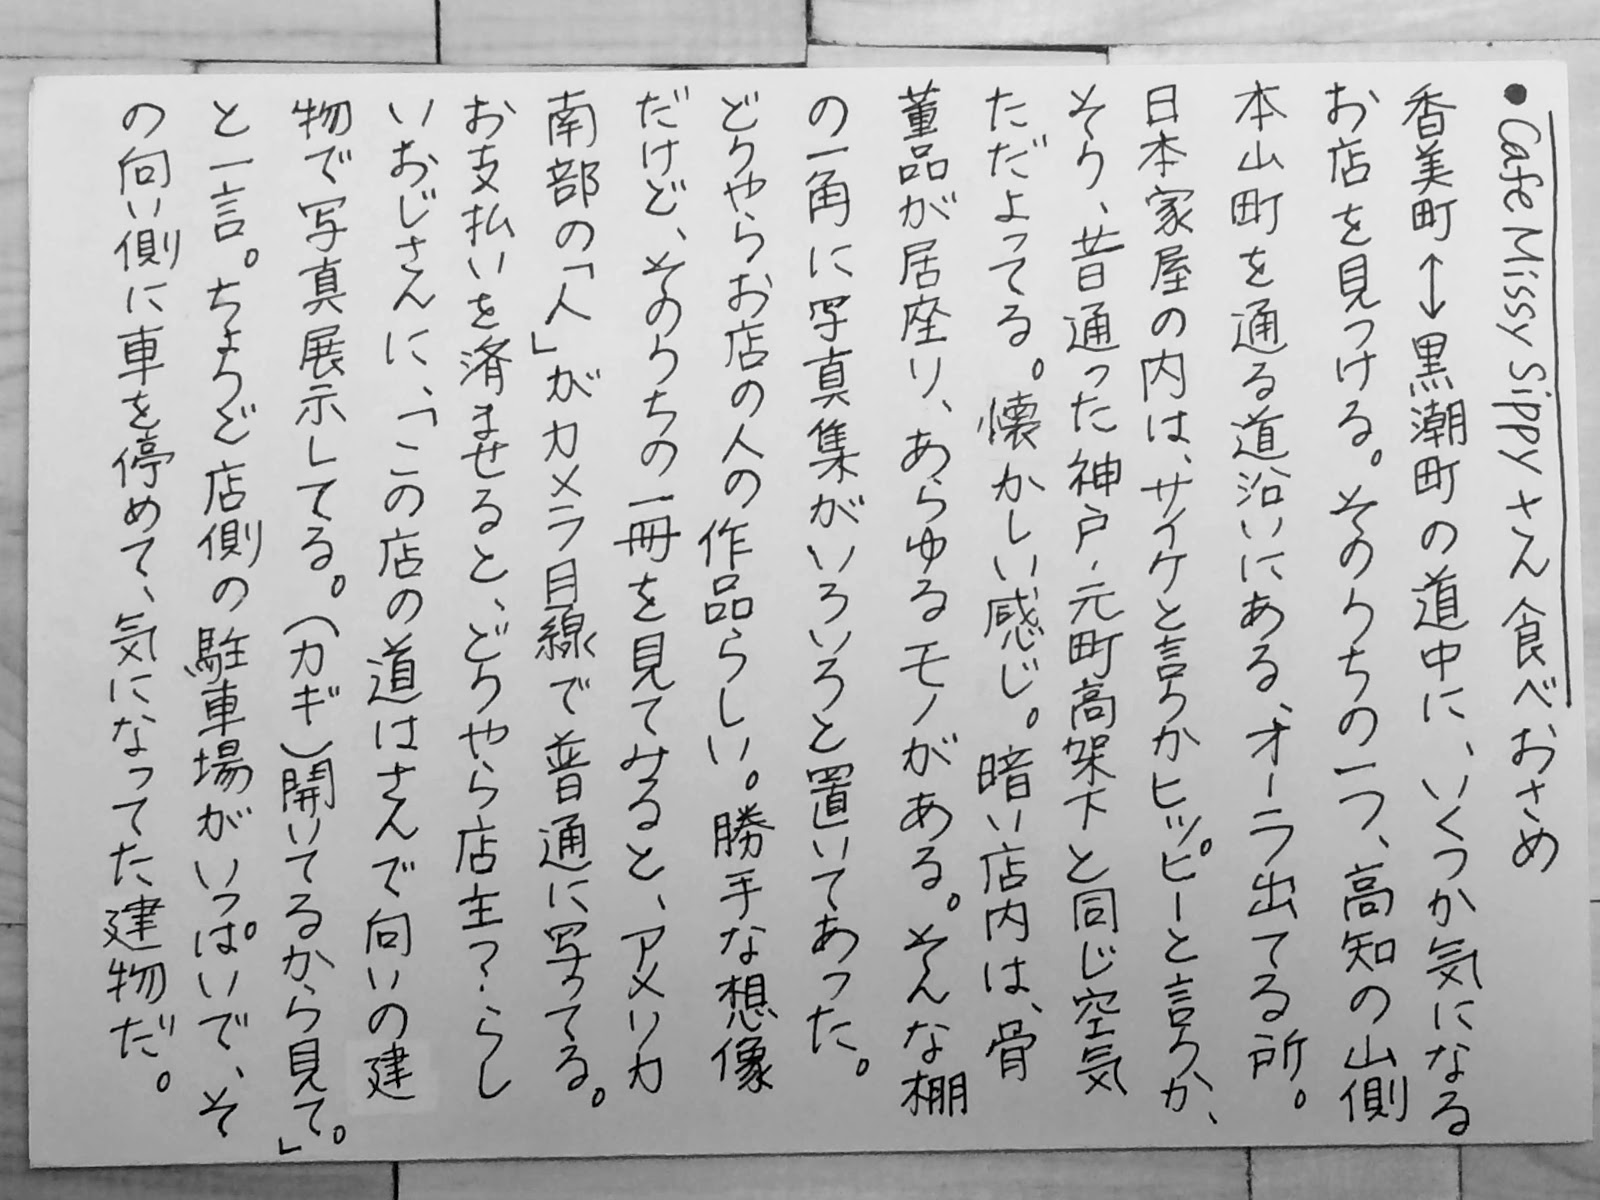 ●Cafe Missy Sippyさん食べおさめ
香美町↔黒潮町の道中に、いくつか気になる
お店を見つける。そのうちの一つ、高知の山側
本山町を通る道沿いにある、オーラ出てる所。
日本家屋の内は、サイケと言うかヒッピーと言うか、
そう、昔通った神戸・元町高架下と同じ空気
ただよってる。懐かしい感じ。暗い店内は、骨
董品が居座り、あらゆるモノがある。そんな棚
の一角に写真集がいろいろと置いてあった。
どうやらお店の人の作品らしい。勝手な想像
だけど、そのうちの一冊を見てみると、アメリカ
南部の「人」がカメラ目線で普通に写ってる。
お支払いを済ませると、どうやら店主?らし
いおじさんに、「この店の道はさんで向いの建
物で写真展示してる。(カギ)開いてるから見て。」
と一言。ちょうど店側の駐車場がいっぱいで、そ
の向い側に車を停めて、気になってた建物だ。